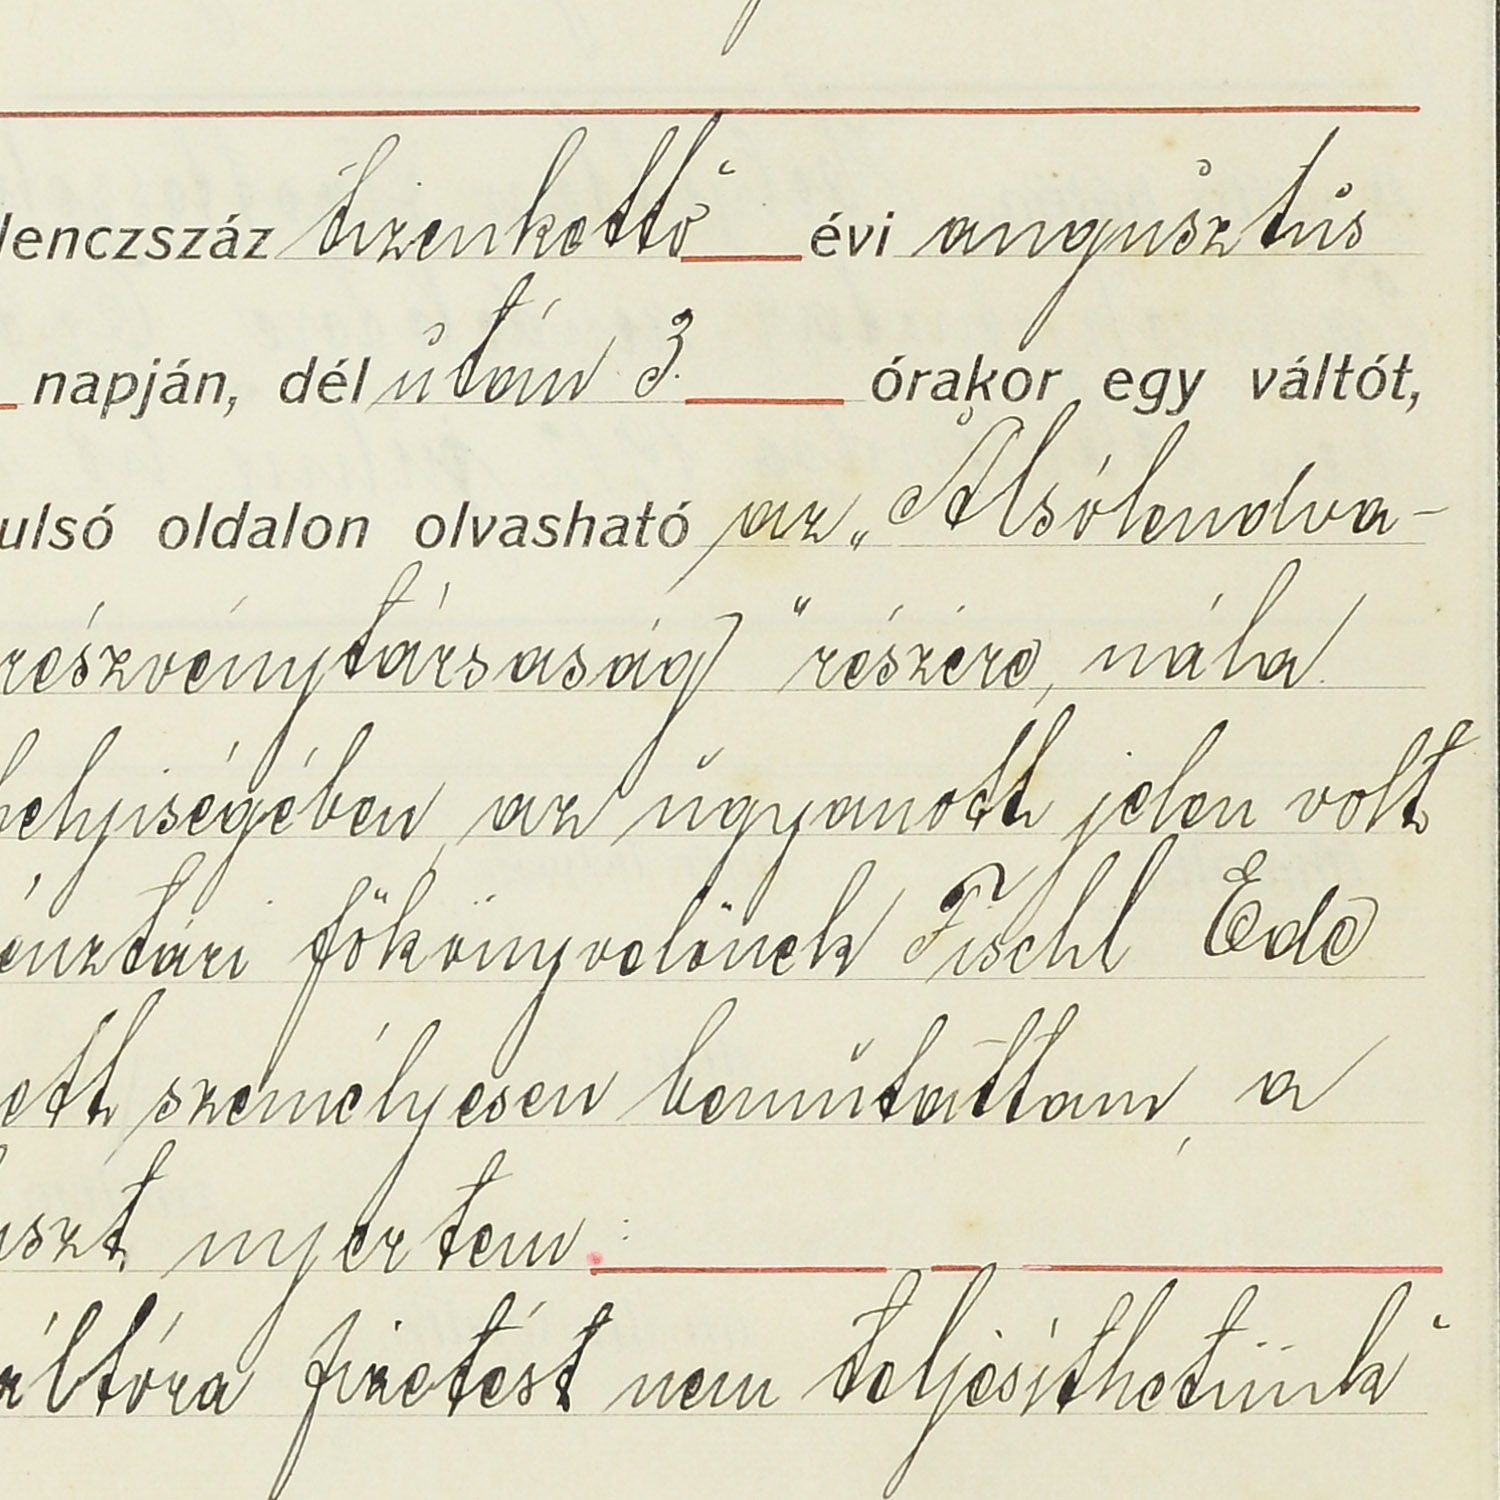 lenczszáz tizenkettő évi augusztus
napján, dél után 3. órakor egy váltót,
ulsó oldalon olvasható az „Alsólendva-
részvénytársaság" részére, nála
helyiségében, az ugyanott jelen volt
énztári főkönyvelőnek Fischl Ede
ett személyesen bemutattam, a
uszt nyertem:
áltóra fizetést nem teljesíthetünk"